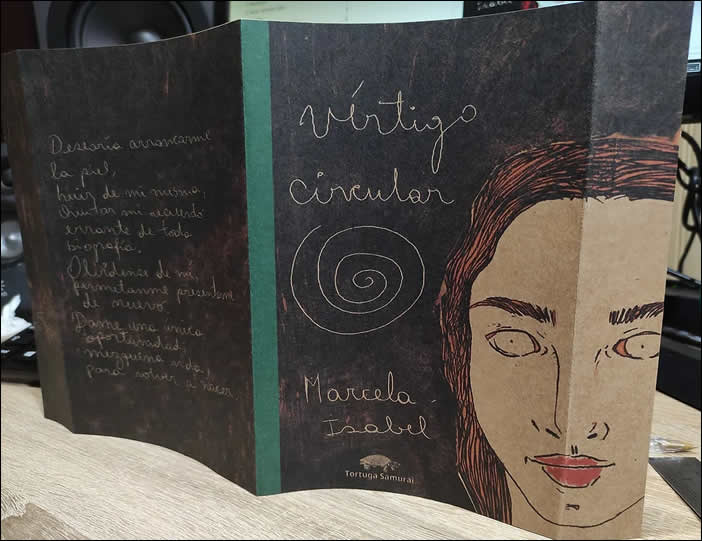 Desearía arrancarme
la piel,
huir de mi misma,
Quitar mi recuerdo
errante de toda
biografía.
Olvidense de mí,
permitanme presentarme
de nuevo.
Dame una única
oportunidad,
mezquina vida,
para volver a nacer.
vértigo
circular
Marcela
Isabel
Tortuga Samurai